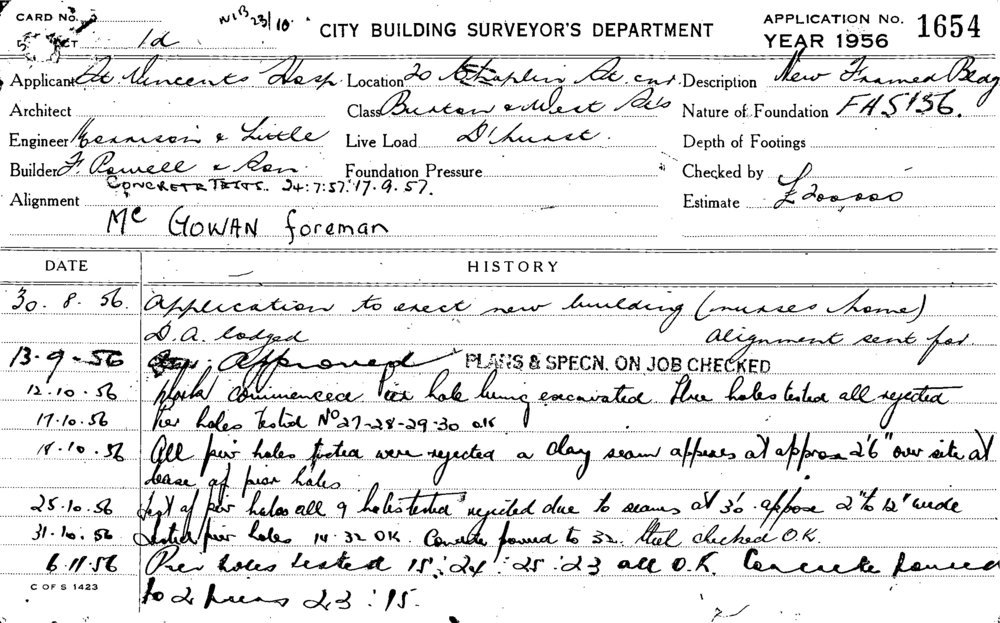 CARD No.
N.I.B 23/10
CITY BUILDING SURVEYOR'S DEPARTMENT
APPLICATION No. 1654
YEAR 1956
1d
Applicant St Vincents Hosp
Location 20 Chaplin St. cnr.
Description New Framed Bldg
Architect
Class Burton & West Sts
Nature of Foundation FAS 136.
Engineer & Little
Live Load D'hurst.
Depth of Footings
Builder F. Powell & Son
Foundation Pressure
Checked by
CONCRETE TESTS. 24:7:57. 17.9.57.
Alignment
Estimate £200,000
Mc GOWAN foreman
DATE
HISTORY
30. 8. 56. Application to erect new building (nurses home)
D.A. lodged alignment sent for
13-9-56 Approved PLANS & SPECN. ON JOB CHECKED
12.10.56 Work commenced Pier hole being excavated. Three holes tested all rejected
17.10.56 Pier holes tested No 27-28-29-30 OK
18.10.56 All pier holes tested were rejected a clay seam appears at approx 2'6" over site at
base of pier holes
25.10.56 Test of pier holes all 9 holes tested rejected due to seams at 3'0 2" to 12" wide
31.10.56 Tested pier holes 14. 32 OK. Concrete poured to 32. Steel checked O.K.
6.11.56 Pier holes tested 15: 24: 25: 23 all O.K. Concrete poured
C OF S 1423
to 2 piers 23: 15.